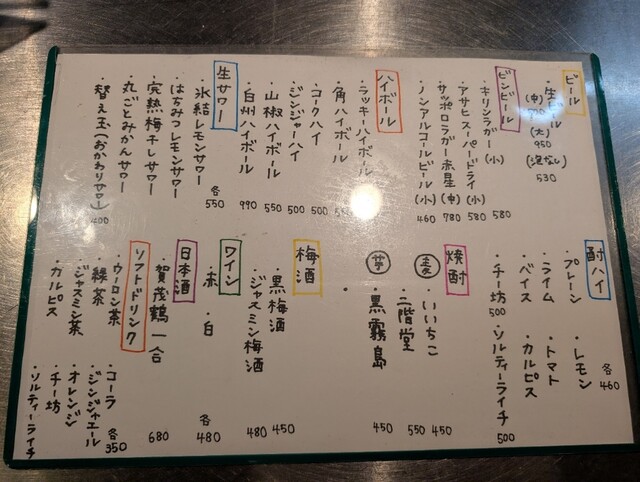 ビール
・生ビール
(中)
(大)
950
(泡なし)
530
ビンビール
・キリンラガー(小) 580
・アサヒスーパードライ(小) 580
・サッポロラガー赤星(中) 780
・ノンアルコールビール(小) 460
ハイボール
・ラッキーハイボール
・角ハイボール
・コークハイ 500
・ジンジャーハイ 500
・山椒ハイボール 550
・白州ハイボール 990
生サワー
・氷結レモンサワー
・はちみつレモンサワー
・完熟梅干しサワー
・丸ごとみかんサワー
各550
・替え玉(おかわりサワー) 400
酎ハイ
・プレーン
・レモン
・ライム
・トマト
・ベイス
・カルピス
各460
・チー坊 500
・ソルティーライチ 500
焼酎
麦
・いいちこ 450
・二階堂 550
芋
・黒霧島 450
・
梅酒
・黒梅酒 450
・ジャスミン梅酒 480
ワイン
・赤・白 各480
日本酒
・賀茂鶴一合 680
ソフトドリンク
・ウーロン茶
・緑茶
・ジャスミン茶
・カルピス
・コーラ
・ジンジャエール
・オレンジ
・チー坊
・ソルティーライチ
各350